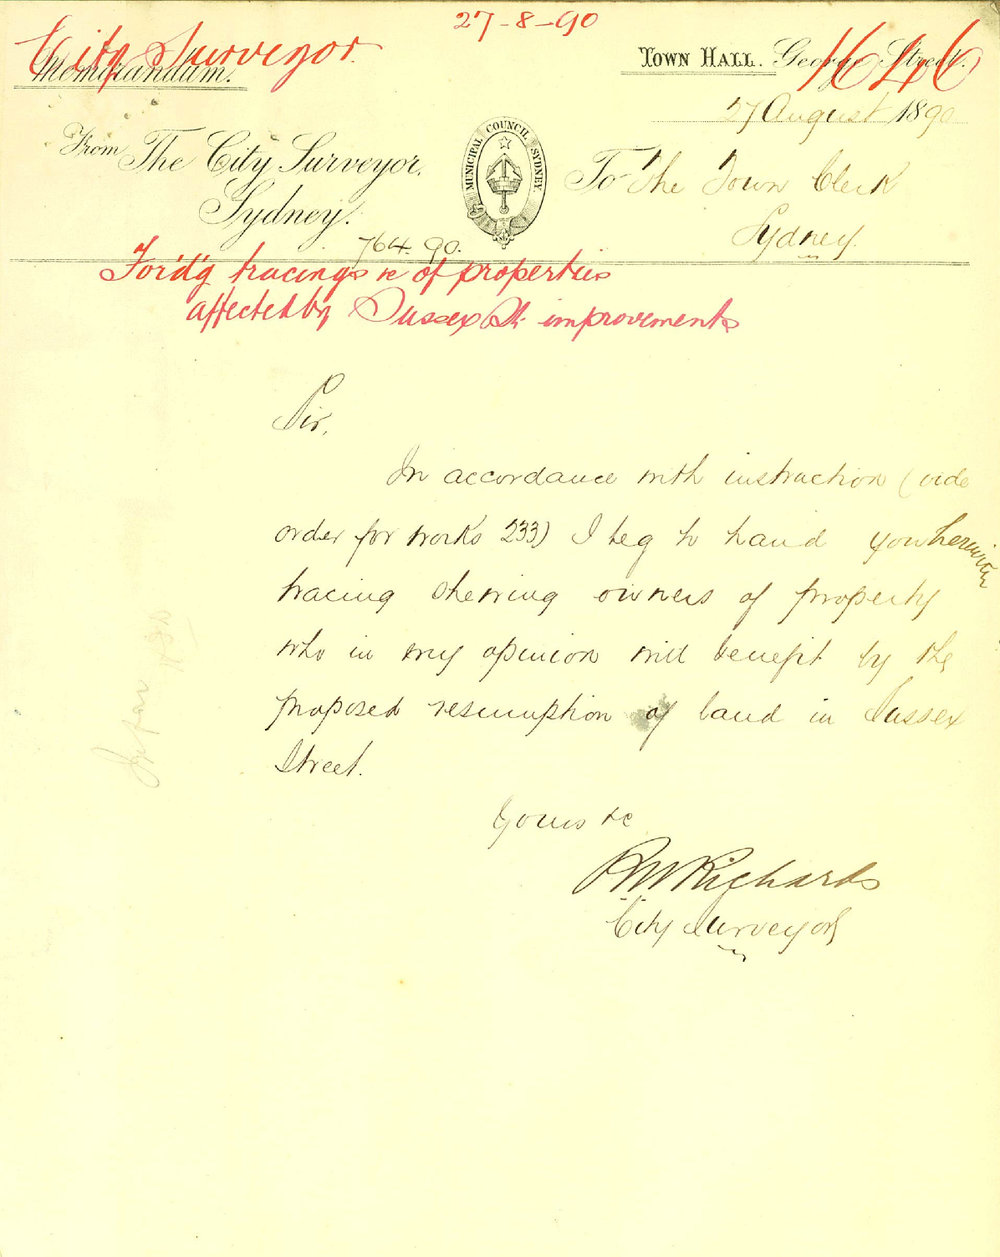 27-8-90
City Surveyor
1646
Memorandum.
Town Hall. George Street.
27 August 1890
From The City Surveyor,
Sydney.
MUNICIPAL COUNCIL SYDNEY.
To The Town Clerk
Sydney.
764.90.
For'd'g tracings re of properties
affected by Sussex St. improvements
Sir,
In accordance with instruction (vide
order for works 233) I beg to hand you herewith
tracing shewing owners of property
who in my opinion will benefit by the
proposed resumption of land in Sussex
Street.
Yours &c
RW Richards
City Surveyor